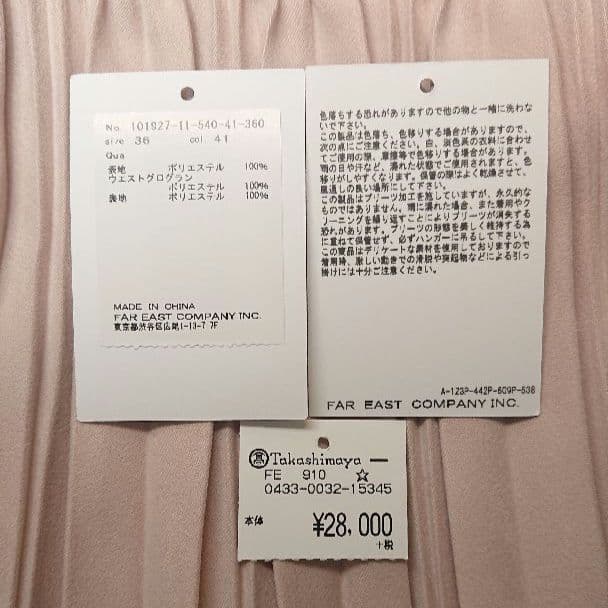 No. 101827-11-540-41-360
size 36 col 41
Qua
表地 ポリエステル 100%
ウエストグログラン
ポリエステル 100%
裏地 ポリエステル 100%
MADE IN CHINA
FAR EAST COMPANY INC.
東京都渋谷区広尾1-13-7 7F
色落ちする恐れがありますので他の物と一緒に洗わな
いで下さい。
この製品は色落ち、色移りする場合がありますので、
次の点にご注意ください。白、淡色系の衣料に合わせ
てご使用の際、摩擦等で色移りする場合があります。
雨の日や汗など、濡れた状態でご使用されますと、色
移りがしやすくなります。保管の際はよく乾燥させて、
風通しの良い場所にして下さい。
この製品はプリーツ加工を施していますが、永久的な
ものではありません。雨に濡れた場合、また着用やク
リーニングを繰り返すことによりプリーツが消失する
恐れがあります。プリーツの形態を美しく維持する為
に重ねて保管せず、必ずハンガーに吊るして下さい。
この商品はデリケートな素材を使用しておりますので
着用時、激しい動きでの滑脱や突起物などによる引っ
掛けには十分ご注意ください。
A-123P-442P-609P-538
FAR EAST COMPANY INC.
髙 Takashimaya
FE 910 ☆
0433-0032-15345
本体 ¥28,000
+税